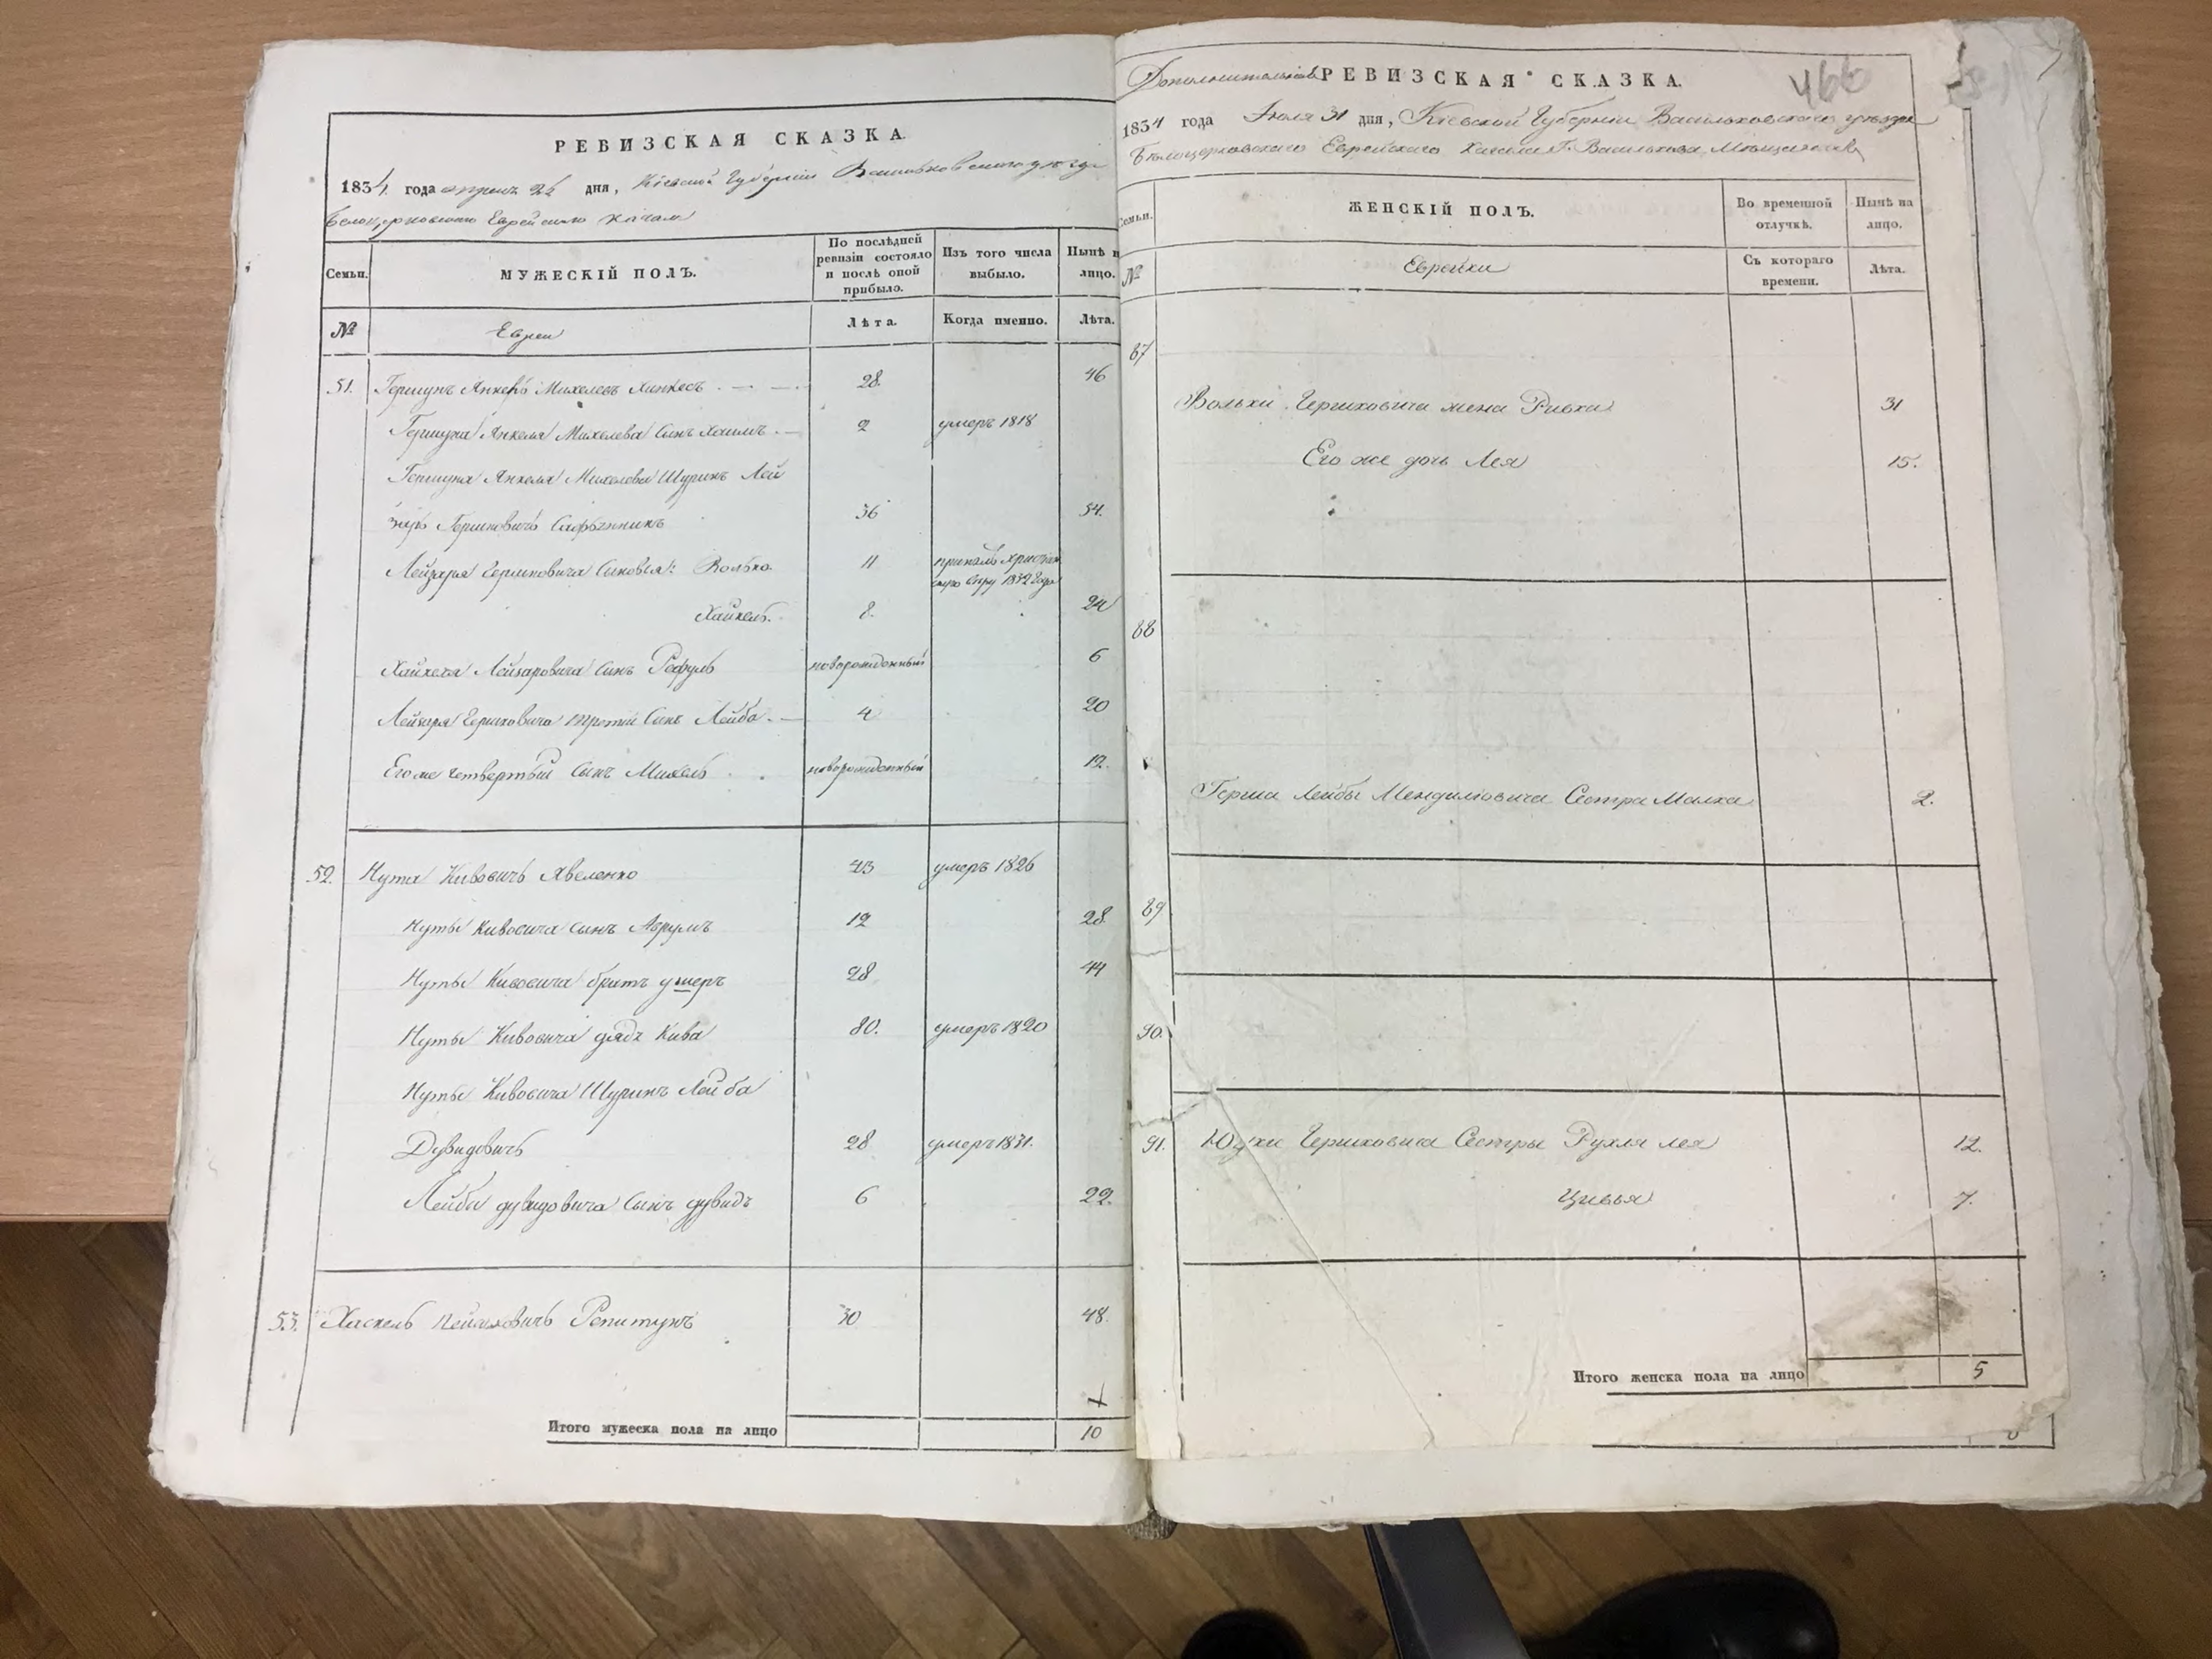 РЕВИЗСКАЯ СКАЗКА.
1834 года апреля 24 дня, Кіевской Губерніи Васильковского уезда
Белоцерковского Еврейского Кагала
Семьи. МУЖЕСКІЙ ПОЛЪ. По послѣдней ревизіи состояло и послѣ оной прибыло. Изъ того числа выбыло. Нынѣ на лицо.
№ Евреи Лѣта. Когда именно. Лѣта.
51. Гершунъ Янкель Михелевъ 28. 46
Гершуна Янкеля Михелева сынъ Хаимъ 2 умеръ 1818
Гершуна Янкеля Михелева Шуринъ Лей
зоръ Гершковичъ 36 54.
Лейзора Гершковича Сыновья: Волько 11 принялъ христіан
скую веру 1832 года
Хайкель. 8. 24
Хайкеля Лейзаровича сынъ Рефуль новорожденный 6
Лейзора Гершковича третій Сынъ Лейба. 4 20
Его же четвертый сынъ Михель новорожденный 12.
52. Нута Кивовичъ Явеленко 43 умеръ 1826
Нуты Кивовича сынъ Аврумъ 12 28
Нуты Кивовича братъ умеръ 28 44
Нуты Кивовича дядя Кива 80. умеръ 1820
Нуты Кивовича Шуринъ Лейба
Дувидовичъ 28 умеръ 1831.
Лейба дувидовича сынъ дувидъ 6 22.
53. Хаскель Репитунъ 30 48
Итого мужеска пола на лицо 10
Дополнительная РЕВИЗСКАЯ СКАЗКА.
466
1834 года Іюля 31 дня, Кіевской Губерніи Васильковского уезда
Белоцерковского Еврейского Кагала Г. Василькова Мещанъ
Семьи. ЖЕНСКІЙ ПОЛЪ. Во временной отлучкѣ. Нынѣ на лицо.
№ Еврейки Съ котораго времени. Лѣта.
87
Вольки Гершковича жена Ривка 31
Его же дочь Лея 15.
88
Герша Лейбы Мендилиовича Сестра Малка 2.
89
90.
91. Юдки Гершковича Сестры Рухля Лея 12.
Цивья 7.
Итого женска пола на лицо 5